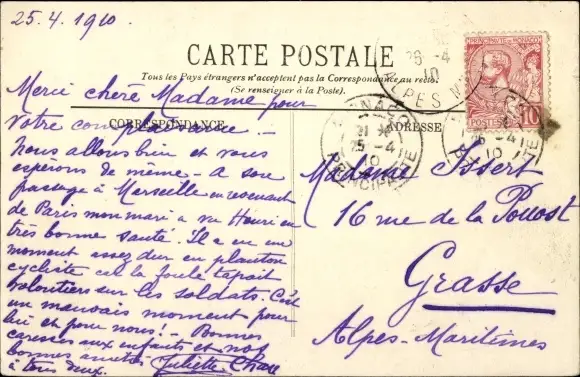 25.4.1910
CARTE POSTALE
Tous les Pays étrangers n'acceptent pas la Correspondance au recto.
(Se renseigner à la Poste).
CORRESPONDANCE
ADRESSE
Merci chère Madame pour
votre complaisance. -
Nous allons bien et vous
espérons de même - A son
passage à Marseille en revenant
de Paris mon mari a vu Henri en
très bonne santé. Il a eu un
moment assez dur en planton
cycliste car la foule tapait
volontiers sur les soldats. C'était
un mauvais moment pour
lui et pour nous! - Bonnes
caresses aux enfants et nos
bonnes amitiés
à tous deux. Juliette
Madame Issert
16 rue de la Pouost
Grasse
Alpes-Maritimes
PRINCIPAUTÉ DE MONACO
POSTES
10
25 -4
10
ALPES M
MONACO
21
25 -4
10
PRINCIPAUTÉ
25 -4
10